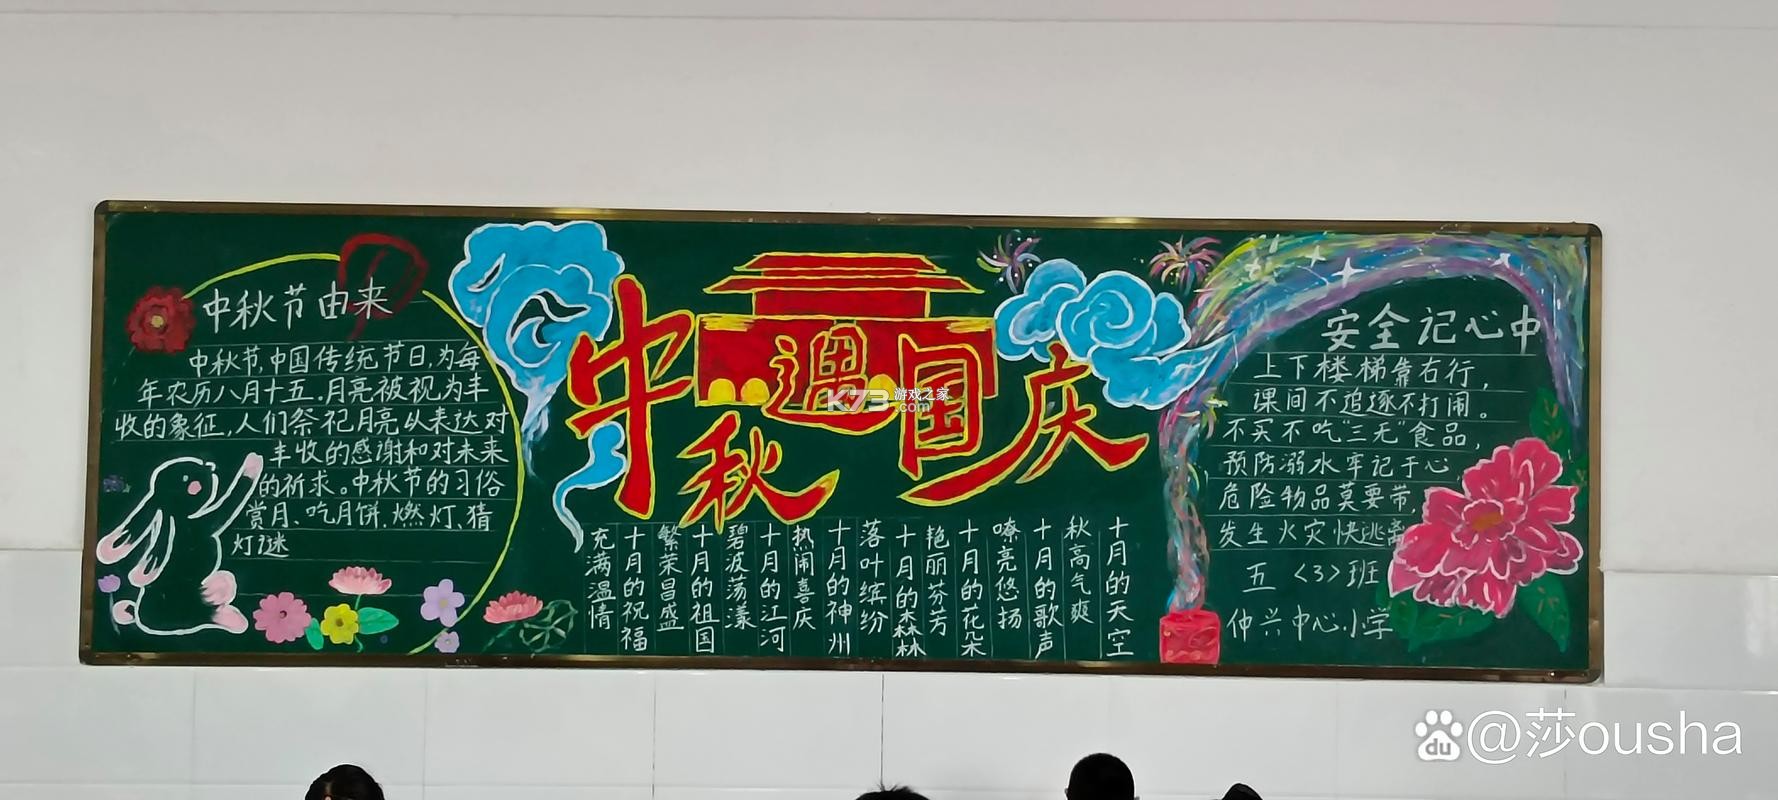 中秋节由来
中秋节,中国传统节日,为每
年农历八月十五.月亮被视为丰
收的象征,人们祭祀月亮以来达对
丰收的感谢和对未来
的祈求。中秋节的习俗
赏月、吃月饼.燃灯、猜
灯谜
中秋遇国庆
K73 游戏之家
.com
十月的天空
秋高气爽
十月的歌声
嘹亮悠扬
十月的花朵
艳丽芬芳
十月的森林
落叶缤纷
十月的神州
热闹喜庆
十月的江河
碧波荡漾
十月的祖国
繁荣昌盛
十月的祝福
充满温情
安全记心中
上下楼梯靠右行,
课间不追逐不打闹。
不买不吃"三无"食品,
预防溺水牢记于心
危险物品莫要带,
发生火灾快逃离
五<3>班
仲兴中心小学
du @莎ousha